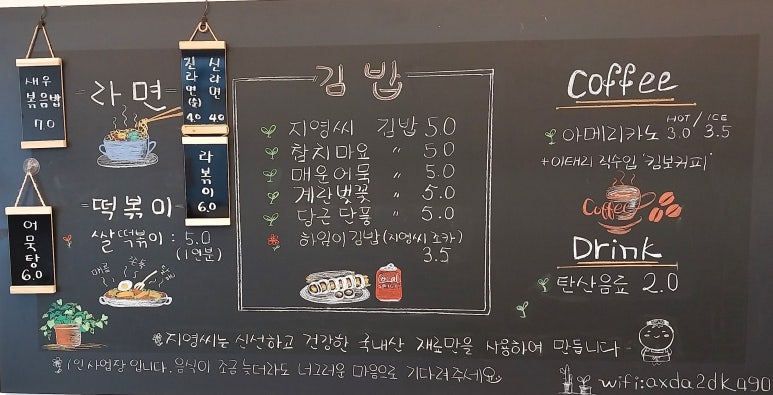 새우
볶음밥
7.0
어묵탕
6.0
라면
진라면(순)
4.0
신라면
4.0
라볶이
6.0
떡볶이
쌀떡볶이 : 5.0
(1인분)
김밥
지영씨 김밥 5.0
참치마요 〃 5.0
매운어묵 〃 5.0
계란벚꽃 〃 5.0
당근단풍 〃 5.0
하임이김밥(지영씨 조카)
3.5
Coffee
HOT / ICE
아메리카노 3.0 / 3.5
+이태리 직수입 '킴보커피'
Coffee
Drink
탄산음료 2.0
지영씨는 신선하고 건강한 국내산 재료만을 사용하여 만듭니다
1인 사업장 입니다. 음식이 조금 늦더라도 너그러운 마음으로 기다려주세요
wifi:axda2dk490